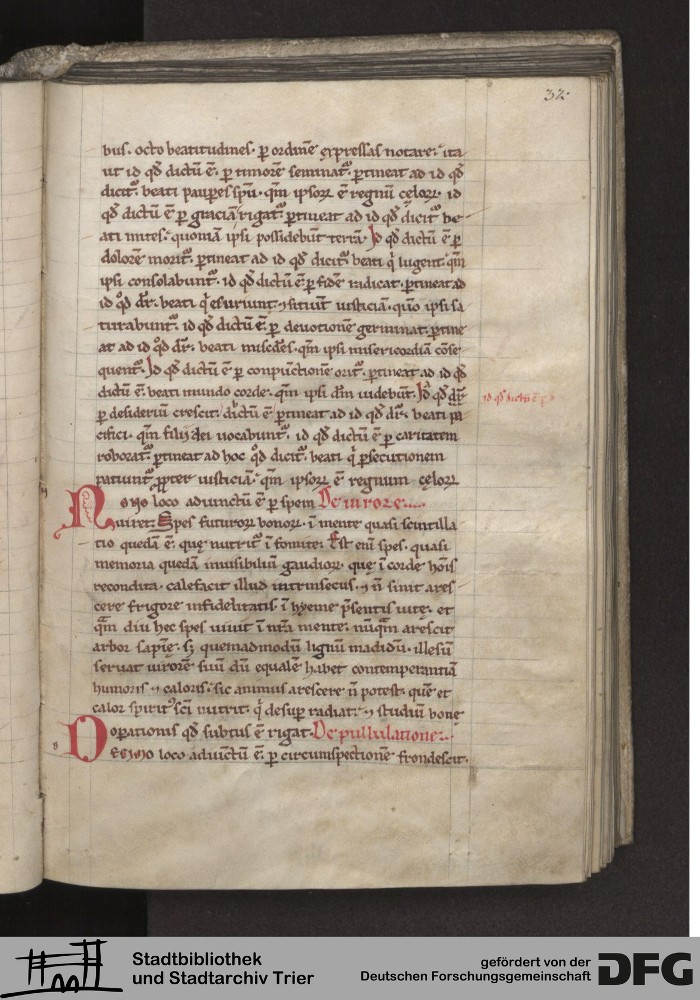 32
bus. octo beatitudines. p ordinē expressas notare. ita
ut id qd̄ dictū ē. p timorē seminat̄. ptineat ad id qd̄
dicit̄. beati paupes spū. qm̄ ipsoꝝ ē regnū cęloꝝ. id
qd̄ dictū ē p graciā rigat̄. ptineat ad id qd̄ dicit̄ be-
ati mites. quoniā ipsi possidebūt terrā. Id qd̄ dictū ē p
dolorē morit̄. ptineat ad id qd̄ dicit̄ beati q̇ lugent. qm̄
ipsi consolabunt̄. id qd̄ dictū ē. p fidē radicat. ptineat ad
id qd̄ dr̄. beati q̇ esuriunt ⁊ sitiūt iusticiā. quō ipsi sa
turabunt̄. id qd̄ dictū ē. p devotionē germinat. ptine
at ad id qd̄ dr̄. beati miscdes. qm̄ ipsi misericordiā cōse
quent̄. Id qd̄ dictū ē p conpunctionē orit̄. ptineat ad id qd̄
dictū ē. beati mundo corde. qm̄ ipsi dm̄ uidebūt. Id qd̄ dr̄
p desideriū crescit. dictū ē ptineat ad id qd̄ dr̄. beati pa
cifici. qm̄ filii dei uocabunt̄. id qd̄ dictū ē p caritatem
roborat̄. ptineat ad hoc qd̄ dicit̄. beati q̇ psecutionem
patiunt̄ ppter iusticiā. qm̄ ipsoꝝ ē regnum cęloꝝ
id qd̄ dictū ē p
Nono loco adiunctū ē p spem De uirore.
Uiret. Spes futuroꝝ bonoꝝ. ī mente quasi scintilla
tio quedā ē. quę nutrit̄ ī fomite. Est enī spes. quasi
memoria quedā inuisibiliū gaudioꝝ. que ī corde hōīs
recondita. calefacit illud intrinsecus. ⁊ n̄ sinit ares
cere frigore infidelitatis. ī hyeme p̄sentis uite. et
qm̄ diu hec spes uiuit ī nr̄a mente. nūqm̄ arescit
arbor sapię. sꝫ quemadmodū lignū madidū. illesū
seruat uirorē suū dū equalē habet contemperantiā
humoris ⁊ caloris. sic animus arescere n̄ potest. quē et
calor spirit̄ sc̄i nutrit. q̇ desup radiat. ⁊ studiū bonę
opationis qd̄ subtus ē rigat. De pullulatione.
Decimo loco adiūctū ē. p circumspectionē frondescit.
Stadtbibliothek
und Stadtarchiv Trier
gefördert von der
Deutschen Forschungsgemeinschaft
DFG